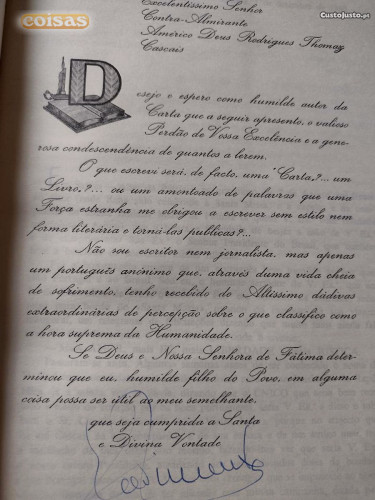 coisas
CustoJusto.pt
Excelentíssimo Senhor
Contra-Almirante
Américo Deus Rodrigues Thomaz
Cascais
Desejo e espero como humilde autor da
Carta que a seguir apresento, o valioso
Perdão de Vossa Excelência e a gene-
rosa condescendência de quantos a lerem.
O que escrevi será, de facto, uma "Carta,?... um
Livro,?... ou um amontoado de palavras que uma
Força estranha me obrigou a escrever sem estilo nem
forma literária e torná-las publicas?...
Não sou escritor nem jornalista, mas apenas
um português anónimo que, através duma vida cheia
de sofrimento, tenho recebido do Altíssimo dádivas
extraordinárias de percepção sobre o que classifico como
a hora suprema da Humanidade.
Se Deus e Nossa Senhora de Fátima deter-
minou que eu, humilde filho do Povo, em alguma
coisa possa ser útil ao meu semelhante,
que seja cumprida a Santa
e Divina Vontade